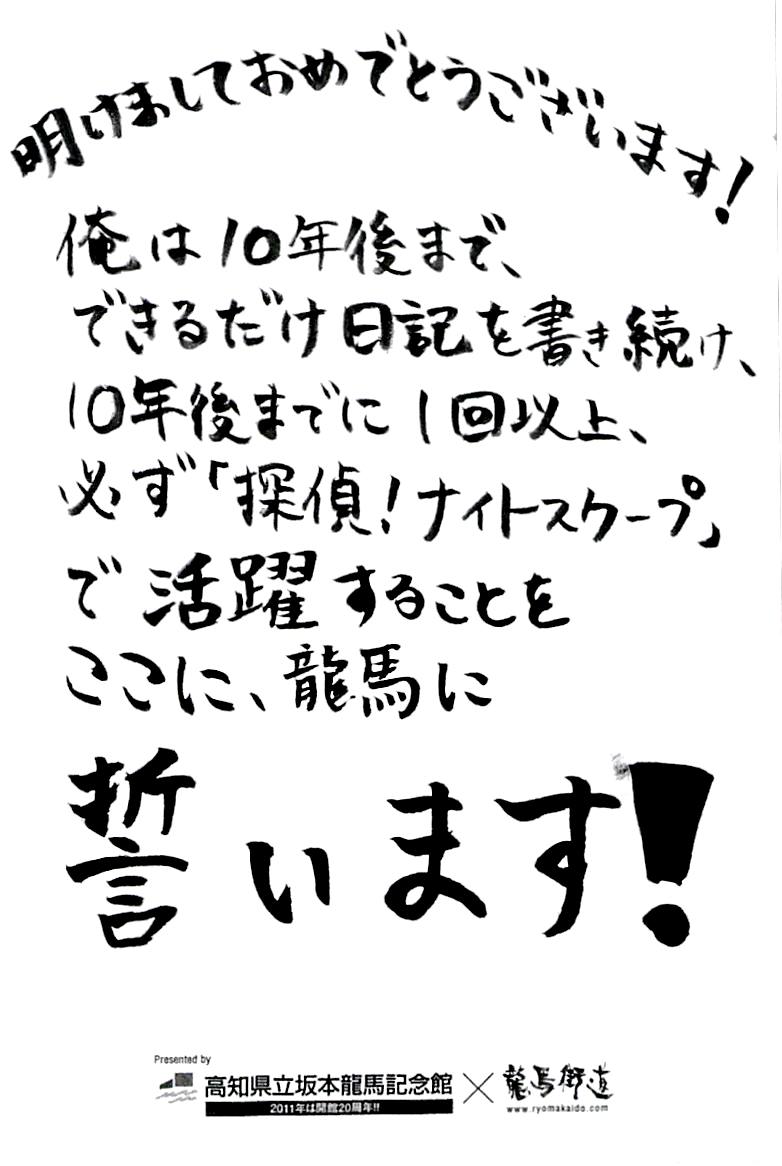 明けましておめでとうございます!
俺は10年後まで、
できるだけ日記を書き続け、
10年後までに1回以上、
必ず「探偵!ナイトスクープ」
で活躍することを
ここに、龍馬に
誓います!
Presented by
高知県立坂本龍馬記念館×龍馬街道
2011年は開館20周年!!
www.ryomakaido.com